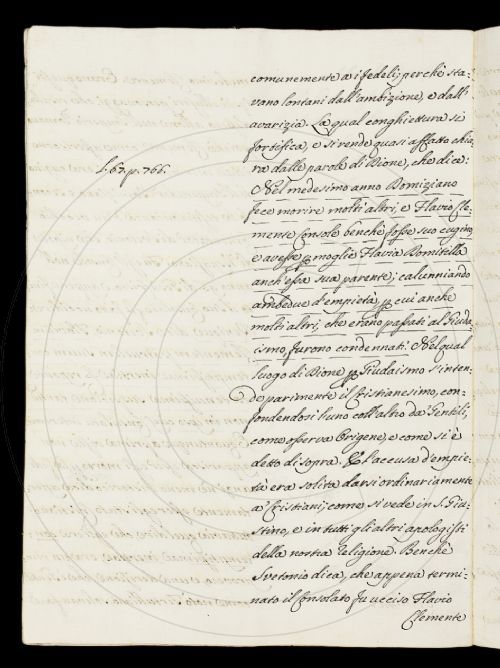 comunemente a i fedeli; perchè sta-
vano lontani dall'ambizione, e dall'
avarizia. La qual conghiettura si
fortifica, e si rende quasi affatto chia-
l. 67. p. 766.
ra dalle parole di Dione, che dice:
Nel medesimo anno Domiziano
fece morire molti altri, e Flavio Cle-
mente Console benchè fosse suo cugino,
e avesse p moglie Flavia Domitilla
anch'essa sua parente; calunniando
ambedue d'empietà, p cui anche
molti altri, che erano passati al Giuda-
ismo furono condennati. Nel qual
luogo di Dione p Giudaismo s'inten-
de parimente il Cristianesimo, con-
fondendosi l'uno coll'altro da' Gentili,
come osserva Origene, e come si è
detto di sopra. E l'accusa d'empie-
tà era solita darsi ordinariamente
a' Cristiani; come si vede in S. Giu-
stino, e in tutti gli altri apologisti
della nostra religione. Benchè
Svetonio dica, che appena termi-
nato il Consolato fu ucciso Flavio
Clemente